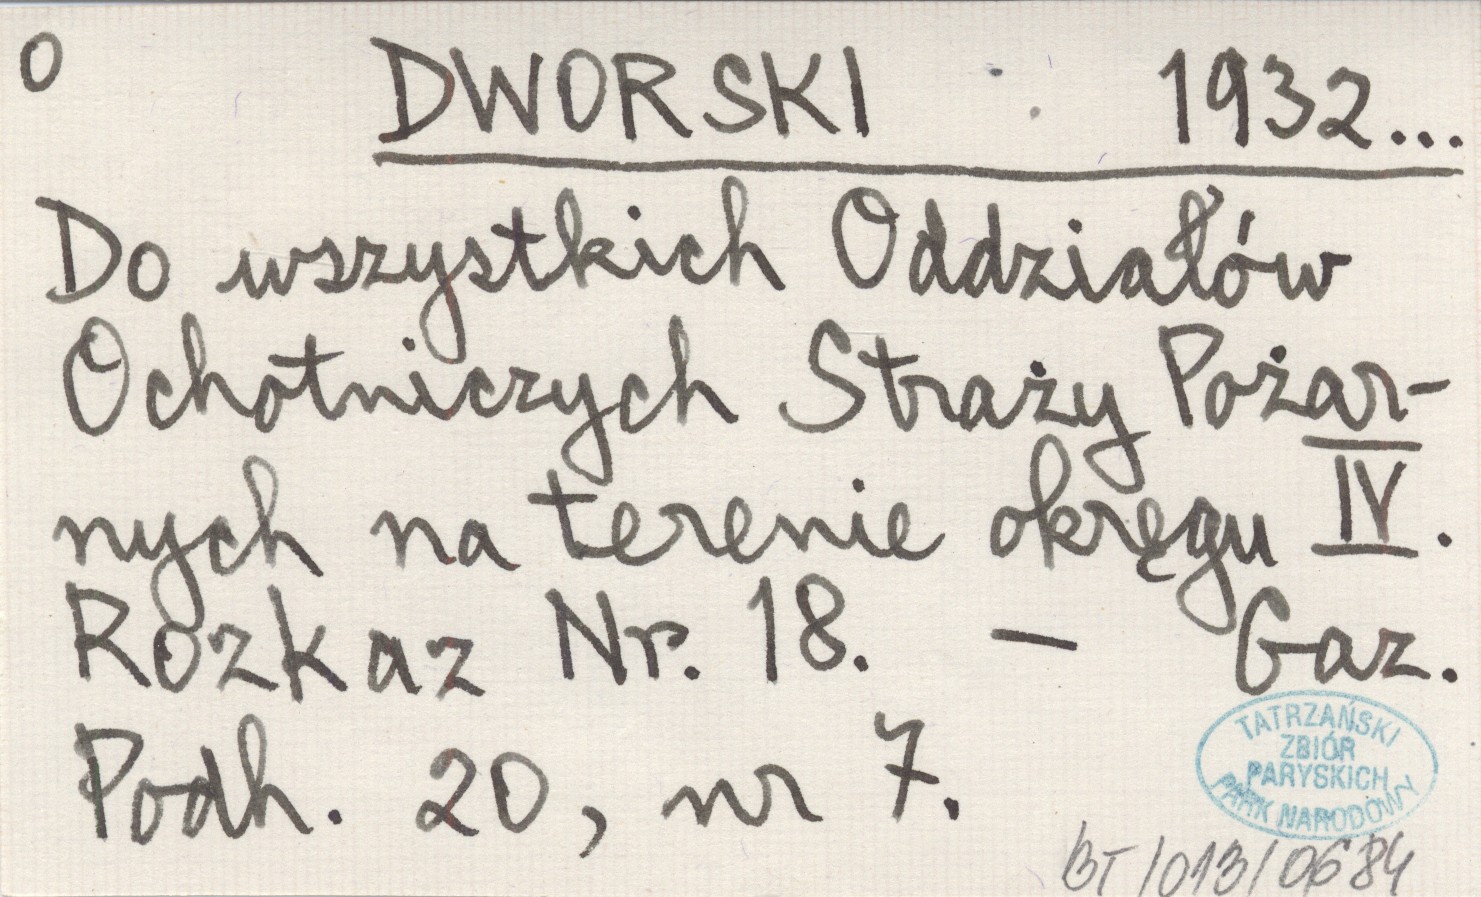 0
DWORSKI 1932...
Do wszystkich Oddziałów
Ochotniczych Straży Pożar-
nych na terenie okręgu IV.
Rozkaz Nr. 18. — Gaz.
Podh. 20, nr 7.
TATRZAŃSKI
ZBIÓR
PARYSKICH
PARK NARODOWY
BT/013/0684